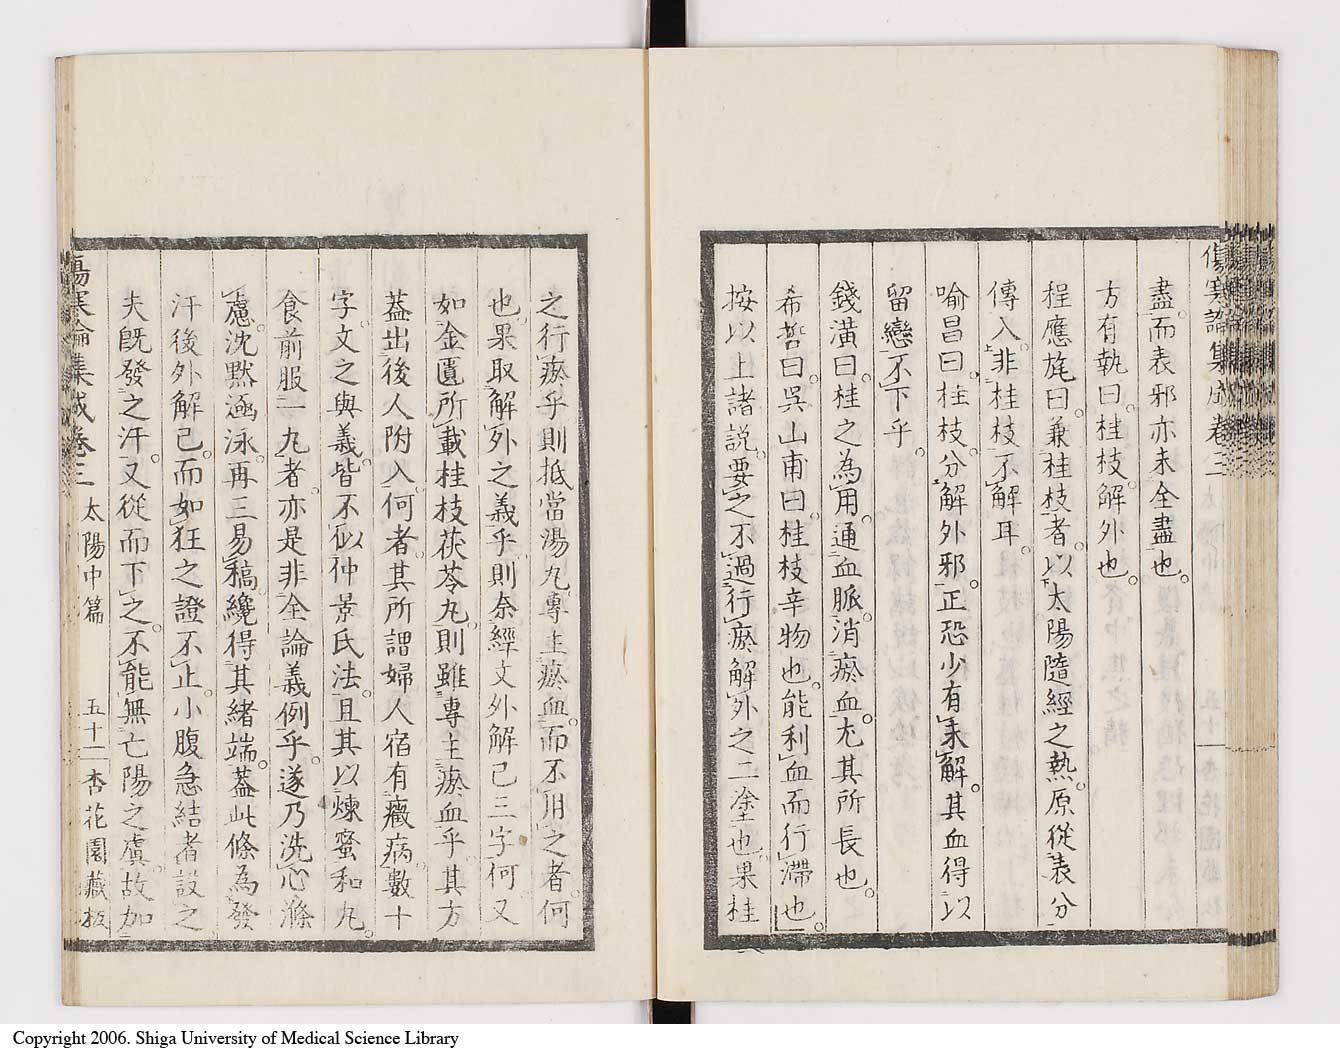 傷寒論集成卷三
盡。而表邪亦未全盡也。
方有執曰。桂枝。解外也。
程應旄曰。兼桂枝者。以太陽隨經之熱。原從表分
傳入。非桂枝不解耳。
喻昌曰。桂枝。分解外邪。正恐少有未解。其血得以
留戀不下乎。
錢潢曰。桂之為用。通血脈。消瘀血。尤其所長也。
希哲曰。吳山甫曰。桂枝辛物也。能利血而行滯也。
按以上諸說。要之不過行瘀解外之二塗也。果桂
之行瘀乎則抵當湯丸。專主瘀血。而不用之者。何
也。果取解外之義乎。則奈經文外解已三字何。又
如金匱所載桂枝茯苓丸。則雖專主瘀血乎。其方
蓋出後人附入。何者。其所謂婦人宿有癥病。數十
字。文之與義。皆不似仲景氏法。且其以煉蜜和丸。
食前服一丸者。亦是非全論義例乎。遂乃洗心滌
慮。沈默涵泳。再三易稿。纔得其緒端。蓋此條為發
汗後外解已。而如狂之證不止。小腹急結者設之
夫既發之汗。又從而下之。不能無亡陽之虞。故加
傷寒論集成卷三 太陽中篇 五十一 杏花園藏板
Copyright 2006. Shiga University of Medical Science Library